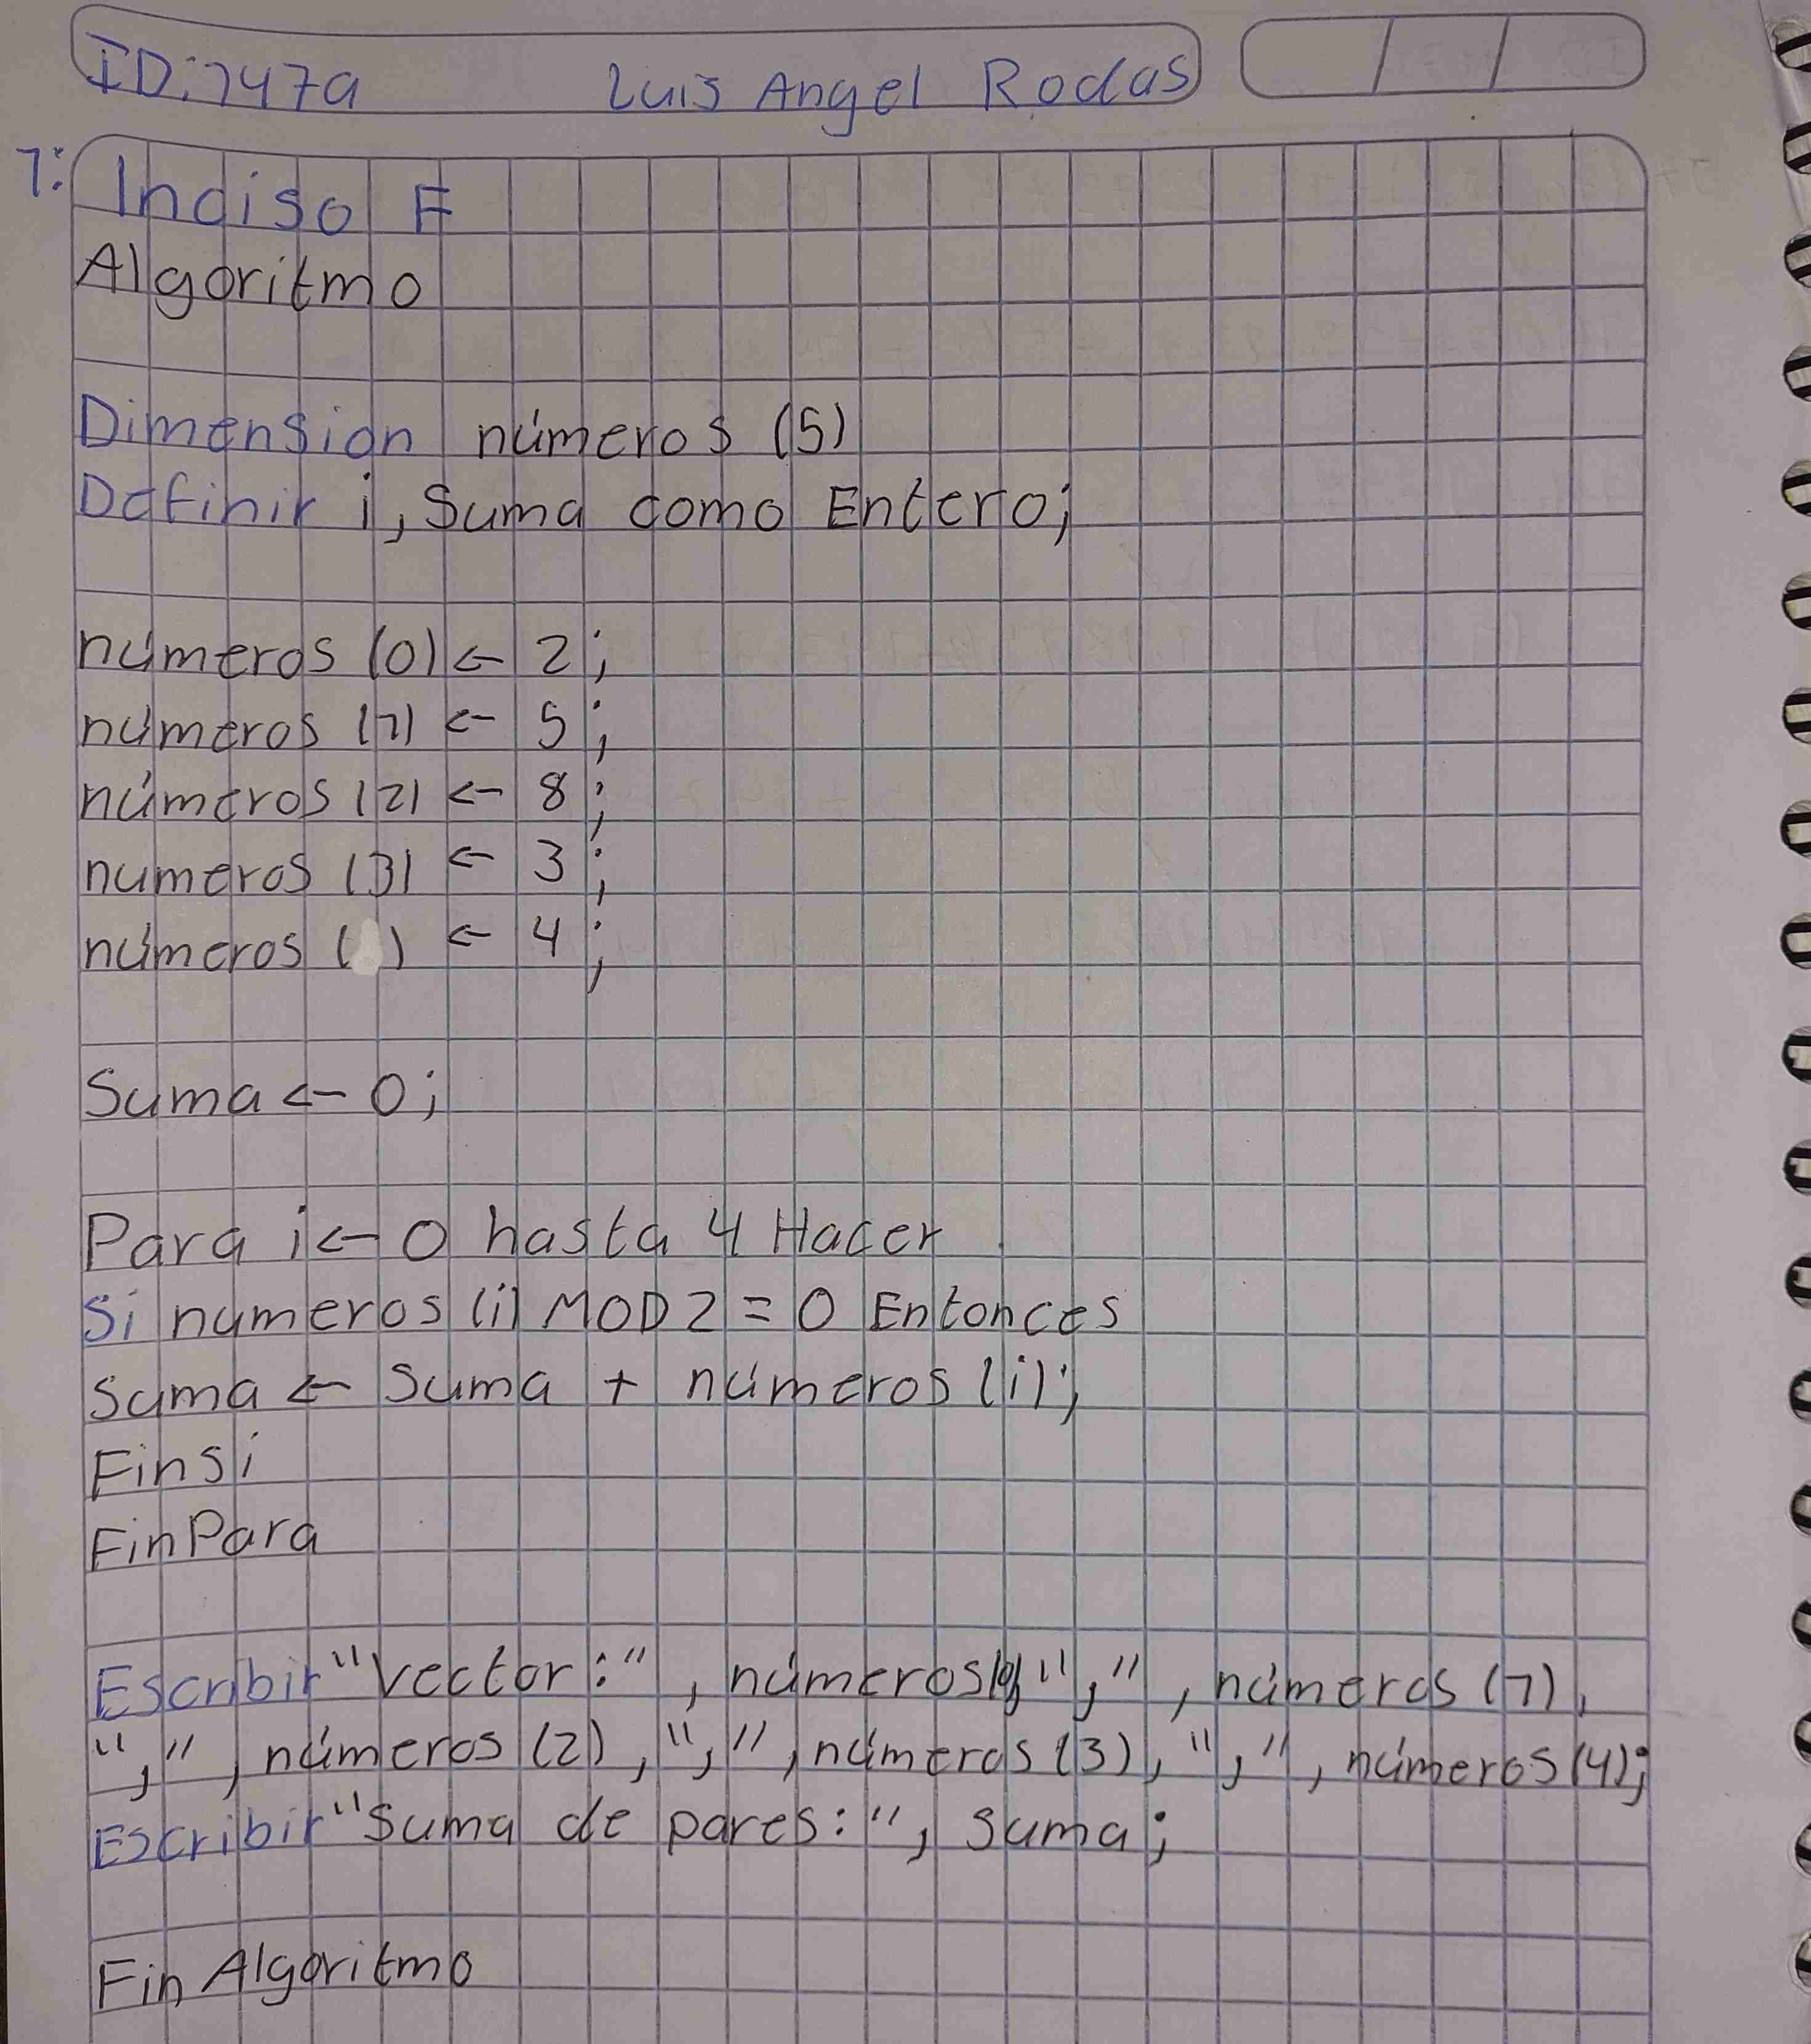 ID:1479 Luis Angel Rodas
1:
Indiso F
Algoritmo
Dimension números (5)
Definir i, Suma como Entero;
números (0) <- 2;
números (1) <- 5;
números (2) <- 8;
numeros (3) <- 3;
números ( ) <- 4;
Suma <- 0;
Para i <- 0 hasta 4 Hacer
Si numeros (i) MOD 2 = 0 Entonces
Suma <- Suma + números (i);
Finsi
FinPara
Escribir "Vector:", números(0) ",", números (1),
",", números (2), ",", números (3), ",", números (4);
Escribir "Suma de pares:", Suma;
Fin Algoritmo